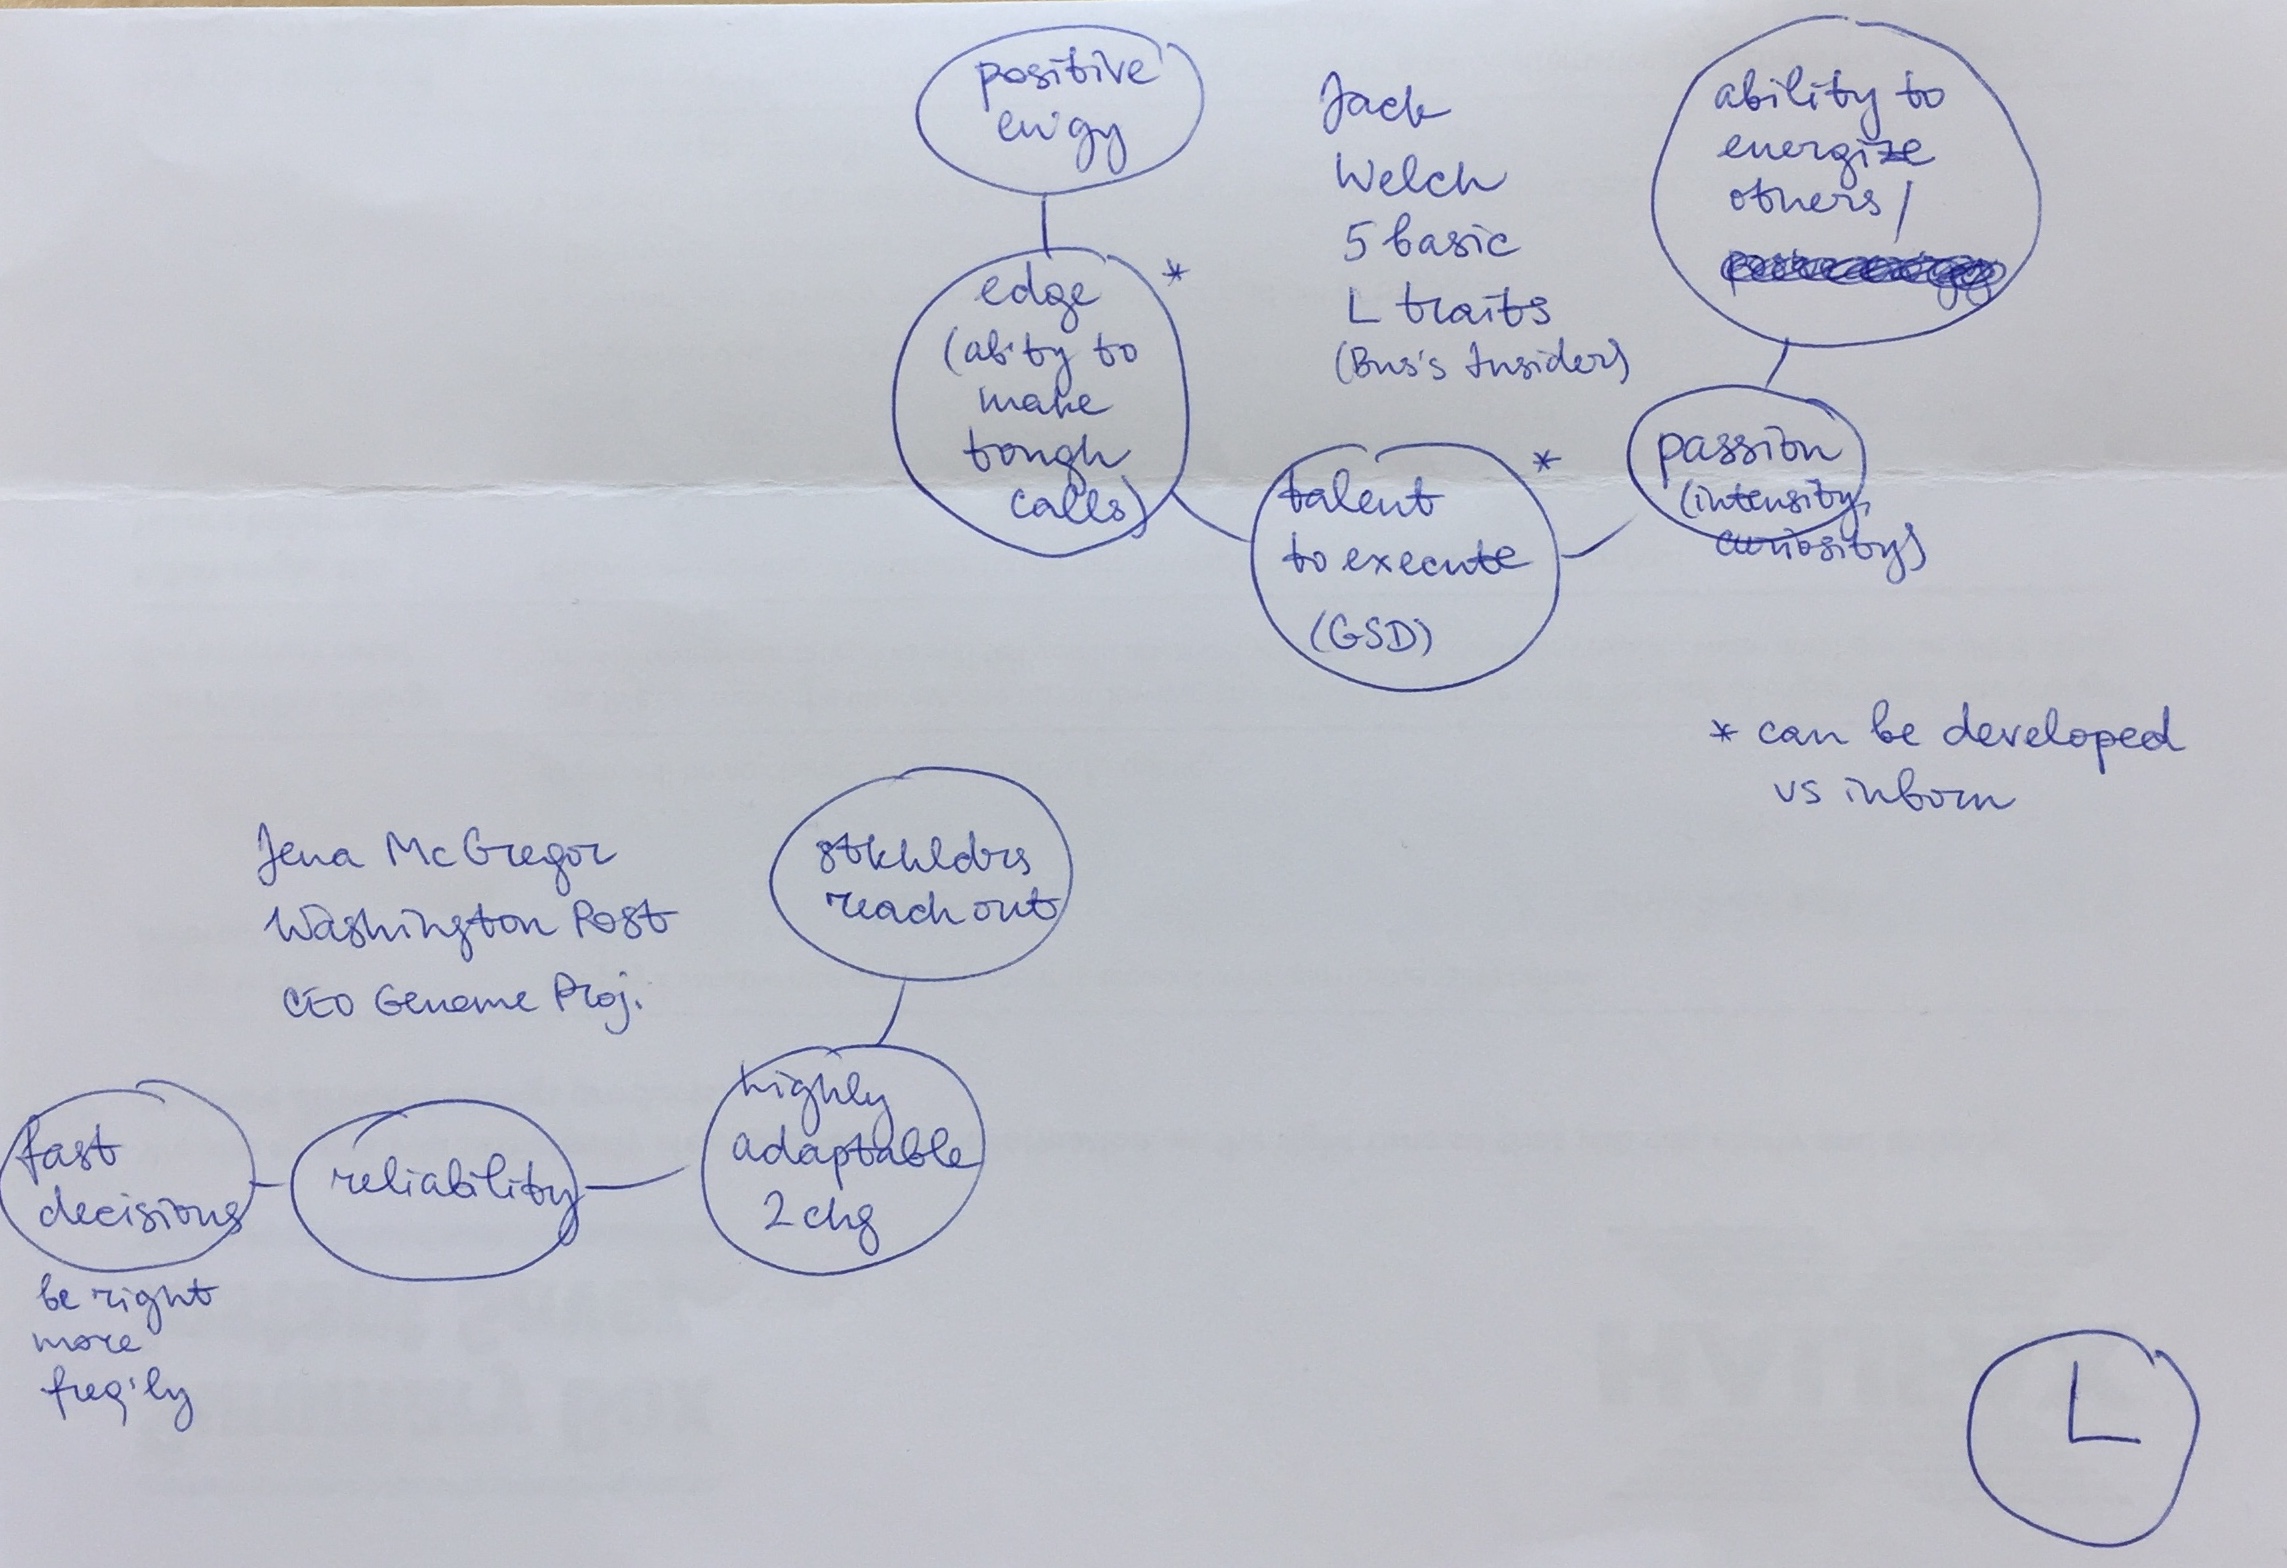 positive
en'gy
edge *
(ab'ty to
make
tough
calls)
Jack
Welch
5 basic
L traits
(Bus's Insider)
talent *
to execute
(GSD)
ability to
energize
others /
passion
(intensity,
curiosity)
* can be developed
vs inborn
Jena McGregor
Washington Post
CEO Genome Proj.
stkhldrs
reach out
highly
adaptable
2 chg
reliability
fast
decisions
be right
more
freq'ly
L